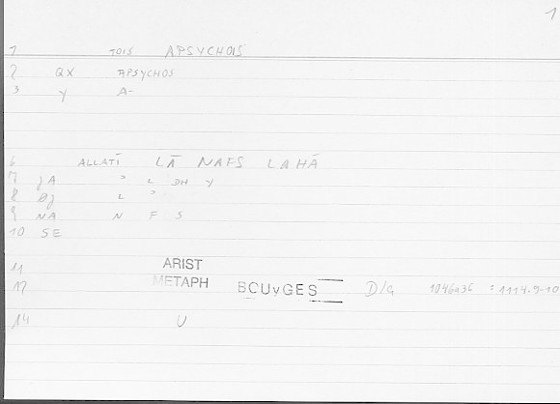 1
1 TOIS APSYCHOIS
2 QX APSYCHOS
3 Y A-
6 ALLATĪ LĀ NAFS LAHĀ
7 JA ʾ L DH Y
8 ØJ L ʾ
9 NA N F S
10 SE
11 ARIST
12 METAPH BOUYGES D/G 1046a36 : 1114.9-10
14 U